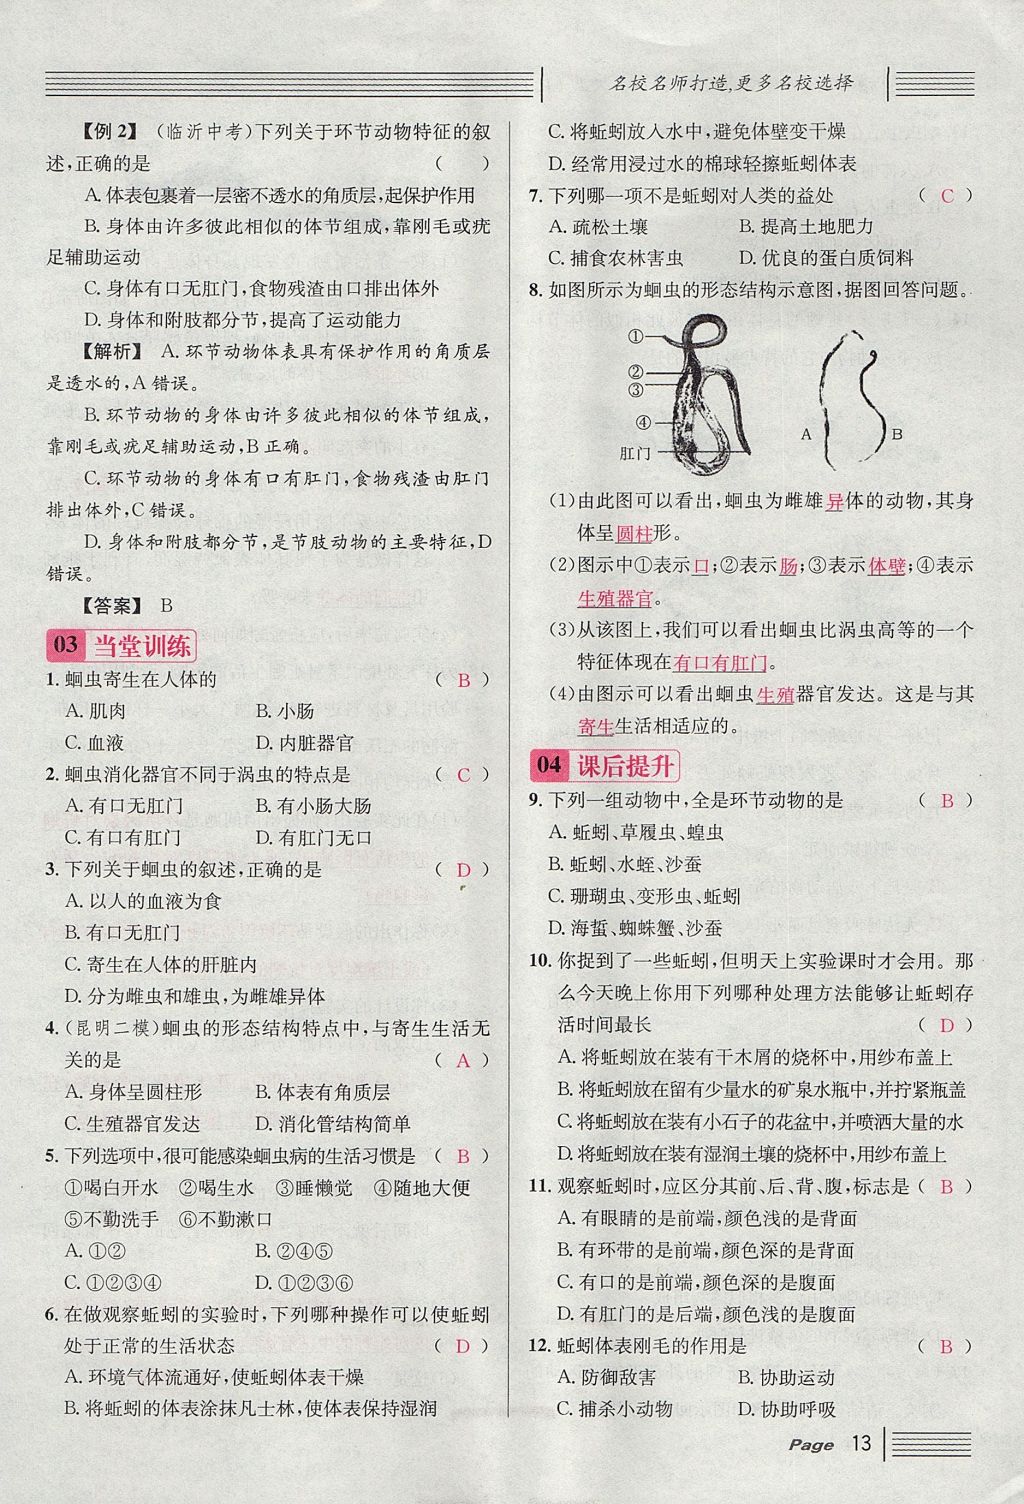 名校名师打造,更多名校选择
【例2】(临沂中考)下列关于环节动物特征的叙
述,正确的是 ( )
A. 体表包裹着一层密不透水的角质层,起保护作用
B. 身体由许多彼此相似的体节组成,靠刚毛或疣
足辅助运动
C. 身体有口无肛门,食物残渣由口排出体外
D. 身体和附肢都分节,提高了运动能力
【解析】 A. 环节动物体表具有保护作用的角质层
是透水的,A 错误。
B. 环节动物的身体由许多彼此相似的体节组成,
靠刚毛或疣足辅助运动,B 正确。
C. 环节动物的身体有口有肛门,食物残渣由肛门
排出体外,C 错误。
D. 身体和附肢都分节,是节肢动物的主要特征,D
错误。
【答案】 B
03 当堂训练
1. 蛔虫寄生在人体的 ( B )
A. 肌肉 B. 小肠
C. 血液 D. 内脏器官
2. 蛔虫消化器官不同于涡虫的特点是 ( C )
A. 有口无肛门 B. 有小肠大肠
C. 有口有肛门 D. 有肛门无口
3. 下列关于蛔虫的叙述,正确的是 ( D )
A. 以人的血液为食
B. 有口无肛门
C. 寄生在人体的肝脏内
D. 分为雌虫和雄虫,为雌雄异体
4. (昆明二模)蛔虫的形态结构特点中,与寄生生活无
关的是 ( A )
A. 身体呈圆柱形 B. 体表有角质层
C. 生殖器官发达 D. 消化管结构简单
5. 下列选项中,很可能感染蛔虫病的生活习惯是 ( B )
①喝白开水 ②喝生水 ③睡懒觉 ④随地大便
⑤不勤洗手 ⑥不勤漱口
A. ①② B. ②④⑤
C. ①②③④ D. ①②③⑥
6. 在做观察蚯蚓的实验时,下列哪种操作可以使蚯蚓
处于正常的生活状态 ( D )
A. 环境气体流通好,使蚯蚓体表干燥
B. 将蚯蚓的体表涂抹凡士林,使体表保持湿润
C. 将蚯蚓放入水中,避免体壁变干燥
D. 经常用浸过水的棉球轻擦蚯蚓体表
7. 下列哪一项不是蚯蚓对人类的益处 ( C )
A. 疏松土壤 B. 提高土地肥力
C. 捕食农林害虫 D. 优良的蛋白质饲料
8. 如图所示为蛔虫的形态结构示意图,据图回答问题。
①
②
③
④
肛门
A B
(1)由此图可以看出,蛔虫为雌雄异体的动物,其身
体呈圆柱形。
(2)图示中①表示口;②表示肠;③表示体壁;④表示
生殖器官。
(3)从该图上,我们可以看出蛔虫比涡虫高等的一个
特征体现在有口有肛门。
(4)由图示可以看出蛔虫生殖器官发达。这是与其
寄生生活相适应的。
04 课后提升
9. 下列一组动物中,全是环节动物的是 ( B )
A. 蚯蚓、草履虫、蝗虫
B. 蚯蚓、水蛭、沙蚕
C. 珊瑚虫、变形虫、蚯蚓
D. 海蜇、蜘蛛蟹、沙蚕
10. 你捉到了一些蚯蚓,但明天上实验课时才会用。那
么今天晚上你用下列哪种处理方法能够让蚯蚓存
活时间最长 ( D )
A. 将蚯蚓放在装有干木屑的烧杯中,用纱布盖上
B. 将蚯蚓放在留有少量水的矿泉水瓶中,并拧紧瓶盖
C. 将蚯蚓放在装有小石子的花盆中,并喷洒大量的水
D. 将蚯蚓放在装有湿润土壤的烧杯中,用纱布盖上
11. 观察蚯蚓时,应区分其前、后、背、腹,标志是 ( B )
A. 有眼睛的是前端,颜色浅的是背面
B. 有环带的是前端,颜色深的是背面
C. 有口的是前端,颜色深的是腹面
D. 有肛门的是后端,颜色浅的是腹面
12. 蚯蚓体表刚毛的作用是 ( B )
A. 防御敌害 B. 协助运动
C. 捕杀小动物 D. 协助呼吸
Page 13